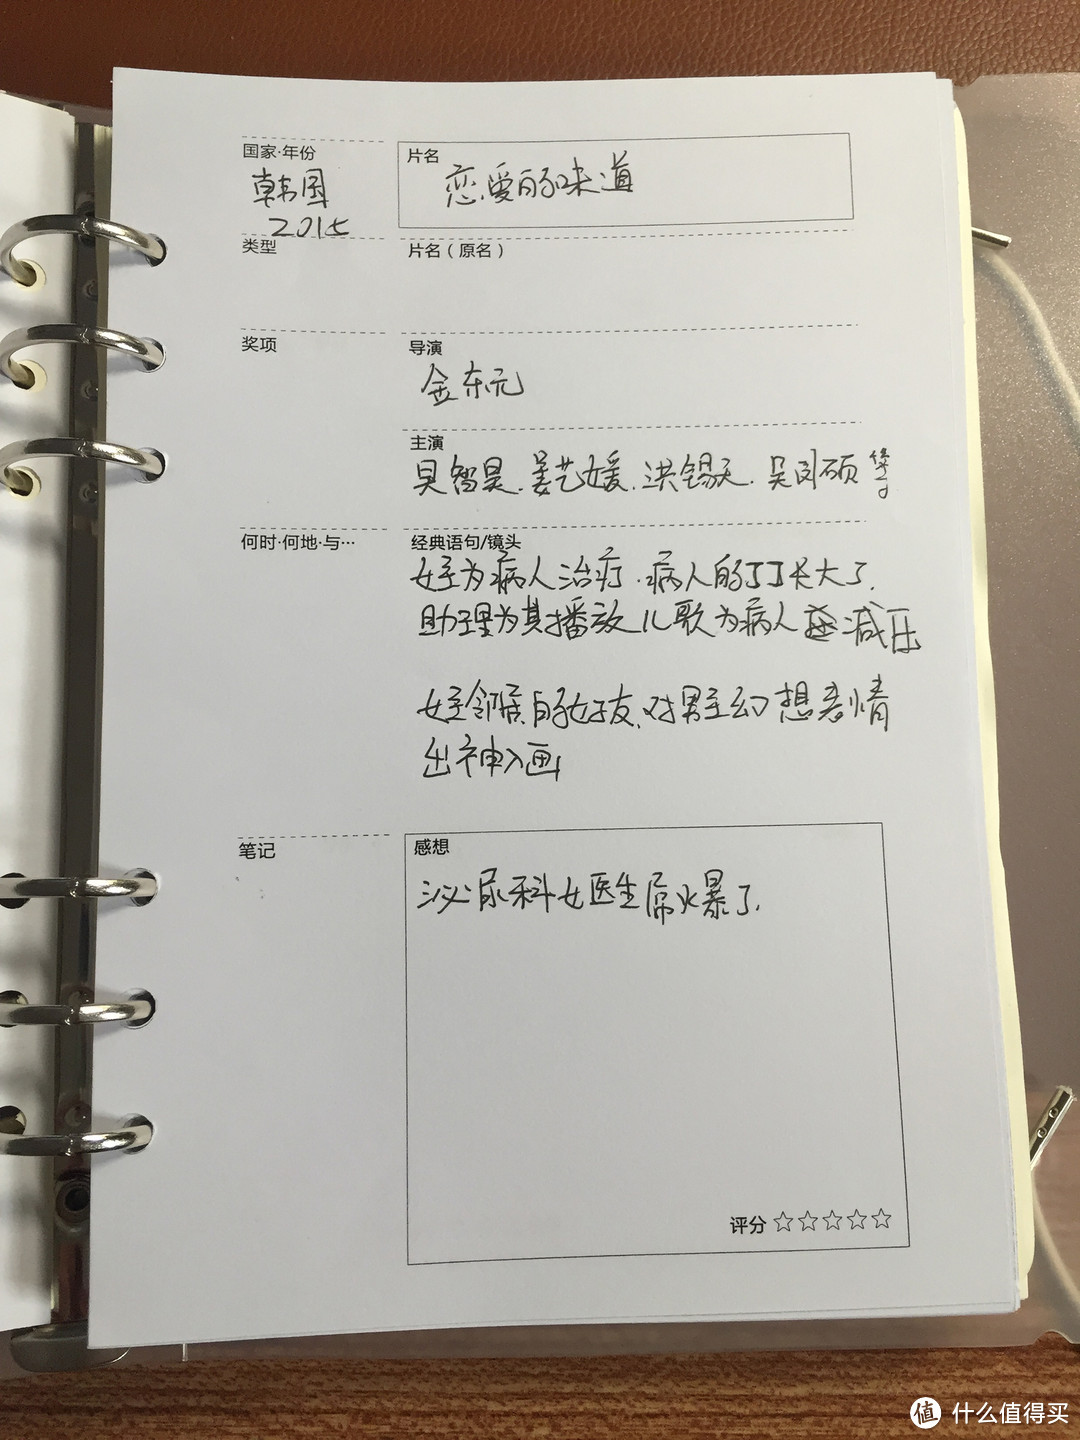 国家·年份
韩国
2015
片名
恋爱的味道
类型
片名（原名）
奖项
导演
金东元
主演
吴智昊.姜艺媛.洪锡天.吴周硕 等
何时·何地·与…
经典语句/镜头
女主为病人治疗.病人的丁丁长大了.
助理为其播放儿歌为病人减压
女主邻居的女友.对男主幻想表情
出神入画
笔记
感想
泌尿科女医生屌火爆了.
评分 ☆☆☆☆☆
值 什么值得买